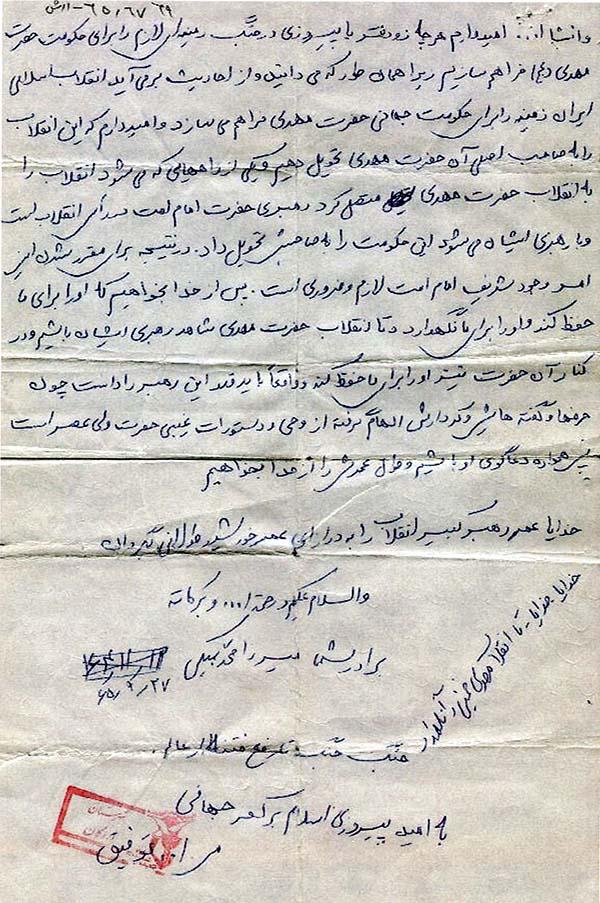 ۲۹ ۶۵/۶۷-ارش
وانشاا... امیدوارم هرچه زودتر با پیروزی در جنگ زمینه‌ای لازم را برای حکومت حضرت
مهدی (عج) فراهم سازیم زیرا همان طور که می دانیم و از احادیث برمی آید انقلاب اسلامی
ایران زمینه را برای حکومت جهانی حضرت مهدی فراهم می سازد و امیدوارم که این انقلاب
را به صاحب اصلی آن حضرت مهدی تحویل دهیم و یکی از راههایی که می شود انقلاب را
به انقلاب حضرت مهدی متصل کرد رهبری حضرت امام امت در رأس انقلاب است
و با رهبری ایشان می شود این حکومت را به صاحبش تحویل داد. در نتیجه برای مقرر شدن این
امر وجود شریف امام امت لازم و ضروری است. پس از خدا بخواهیم که او را برای ما
حفظ کند و او را برای ما نگهدارد و تا انقلاب حضرت مهدی شاهد رهبری ایشان باشیم و در
کنار آن حضرت نیز او را برای ما حفظ کند و واقعاً باید قدر این رهبر را دانست چون
حرفها و گفته هایش و کردارش الهام گرفته از وحی و دستورات غیبی حضرت ولی عصر است
پس همواره دعاگوی او باشیم و طول عمرش را از خدا بخواهیم
خدایا عمر رهبر کبیر انقلاب را به درازای عمر خورشید طولانی بگردان
والسلام علیکم و رحمةا... و برکاته
برادر شما میرزا محمد بیکی
۶۵/۲/۲۷
خدایا خدایا - تا انقلاب مهدی خمینی را نگهدار
جنگ جنگ تا رفع فتنه از عالم.
به امید پیروزی اسلام بر کفر جهانی
من ا... توفیق